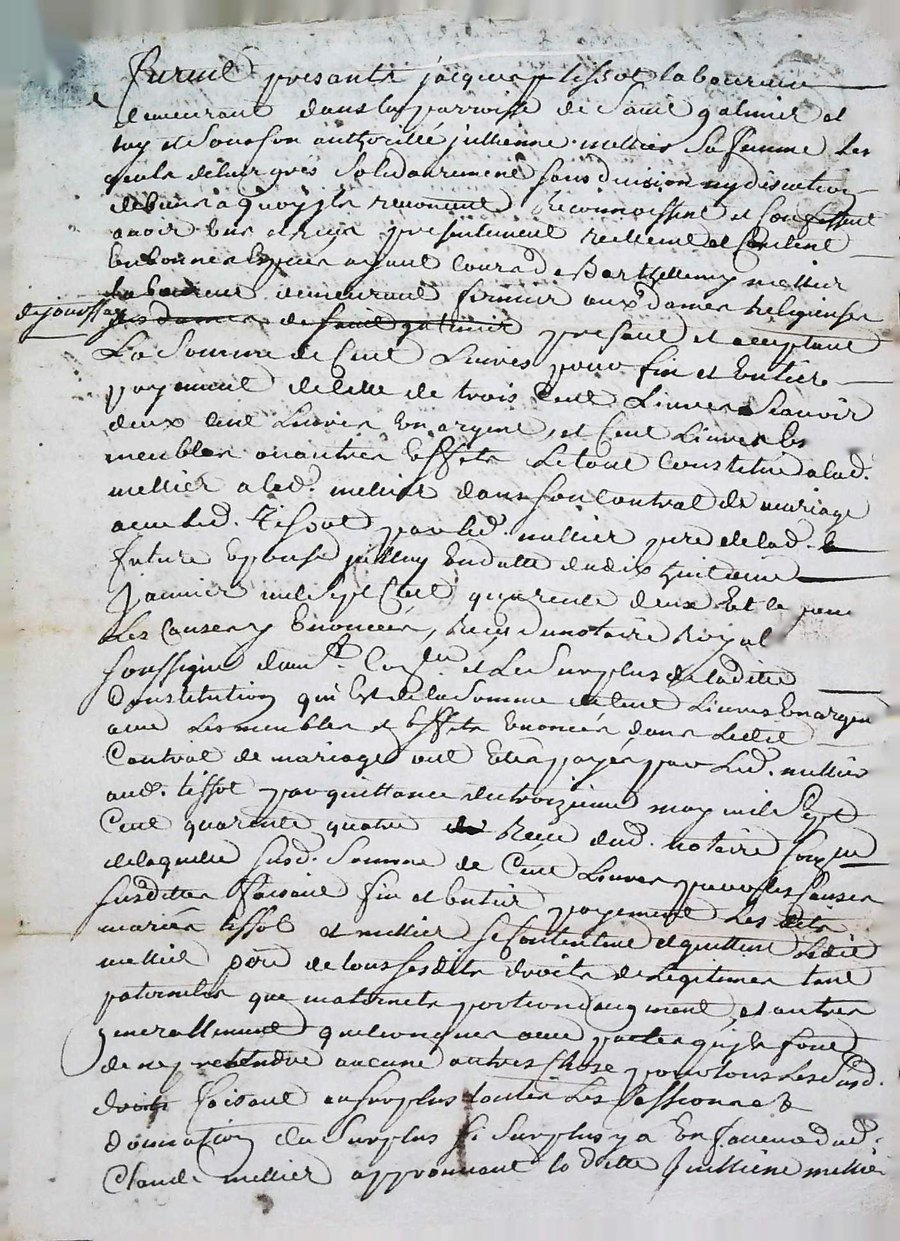 furent presants jacques tissot laboureur
demeurant dans la parroisse de Saint galmier et
luy et de son authorittée jullienne mellier Sa femme Les
quels de leur grés Solidairement sans division ny discution
de biens a quoy ils renoncent Reconnoissent et Confessent
avoir eue et reçu presentement reellement et Content
En bonnes Espèces ayant Cours de Barthellemy mellier
laboureur demeurant fermier aux dames Religieuses
de jourssay
des dames de saint galmier present et acceptant
La Somme de Cent Livres pour fin et Entière
payement de celle de trois Cent Livres Scavoir
deux Cent Livres En argent, et Cent Livres En
meubles ou autres Effets Le tout Constitué a lad.
mellier a lad. mellier dans son Contrat de mariage
avec led. Tissot par led. mellier pere de lad.
future Epouse jceluy En datte du dix huitieme
Janvier mil sept Cent quarente deux Et le pour
Les Causes y Enoncées, Reçu du notaire Royal
soussigné et Le Surplus de laditte
Constitution qui Est de la Somme de Cent Livres En argent
avec Les meubles et Effets Enoncés dans Ledit
Contrat de mariage ont Etés payés par Led. mellier
aud. tissot par quittance du troizieme may mil Sept
Cent quarente quatre Reçue dud. notaire
de laquelle susd. Somme de Cent Livres pour les Causes
susdittes faisant fin et Entier payement Les dits
mariés tissot et mellier se Contentent et quittent Ledit
mellier père de tous ses dits droits de Legitimes tant
paternels que maternels portion daugment, et autres
generallement quelconques avec pacte quils font
de ne y pretendre aucune autres Chose pour tous Les susd.
droits faisant au surplus toutes Les Cessions et
donnation du Surplus si Surplus y a En faveur dud.
Claude mellier approuvant la ditte Jullienne mellier